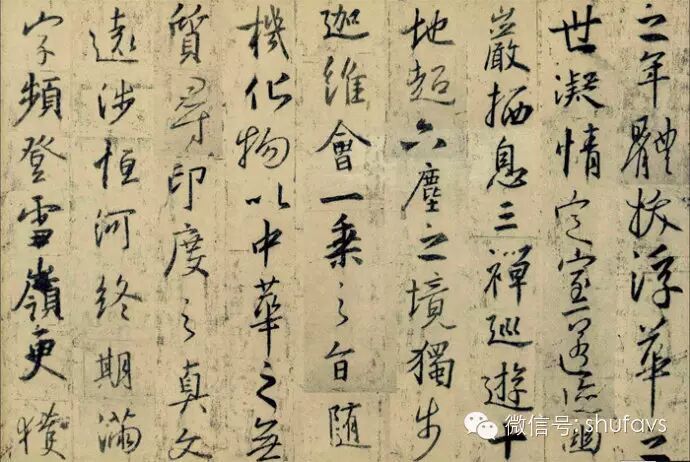 之年體拔浮華之
世凝情定室匿跡幽
巖栖息三禪巡遊十
地超六塵之境獨步
迦維會一乘之旨隨
機化物以中華之無
質尋印度之真文
遠涉恒河終期滿
字頻登雪嶺更獲
微信号: shufavs